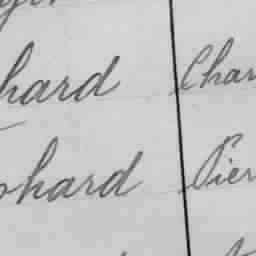 hard Char
phard Pier